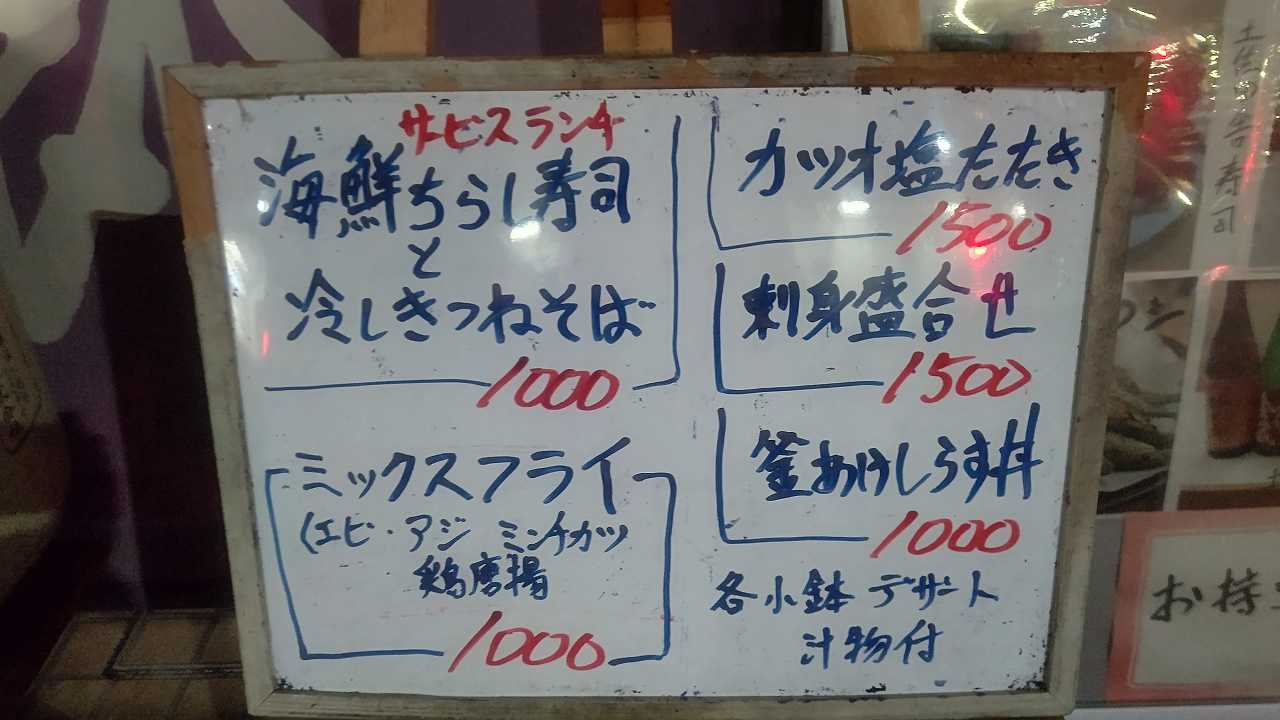 サービスランチ
海鮮ちらし寿司
と
冷しきつねそば
1000
ミックスフライ
(エビ・アジ ミンチカツ
鶏唐揚
1000
カツオ塩たたき
1500
刺身盛合せ
1500
釜あげしらす丼
1000
各小鉢 デザート
汁物付
お持